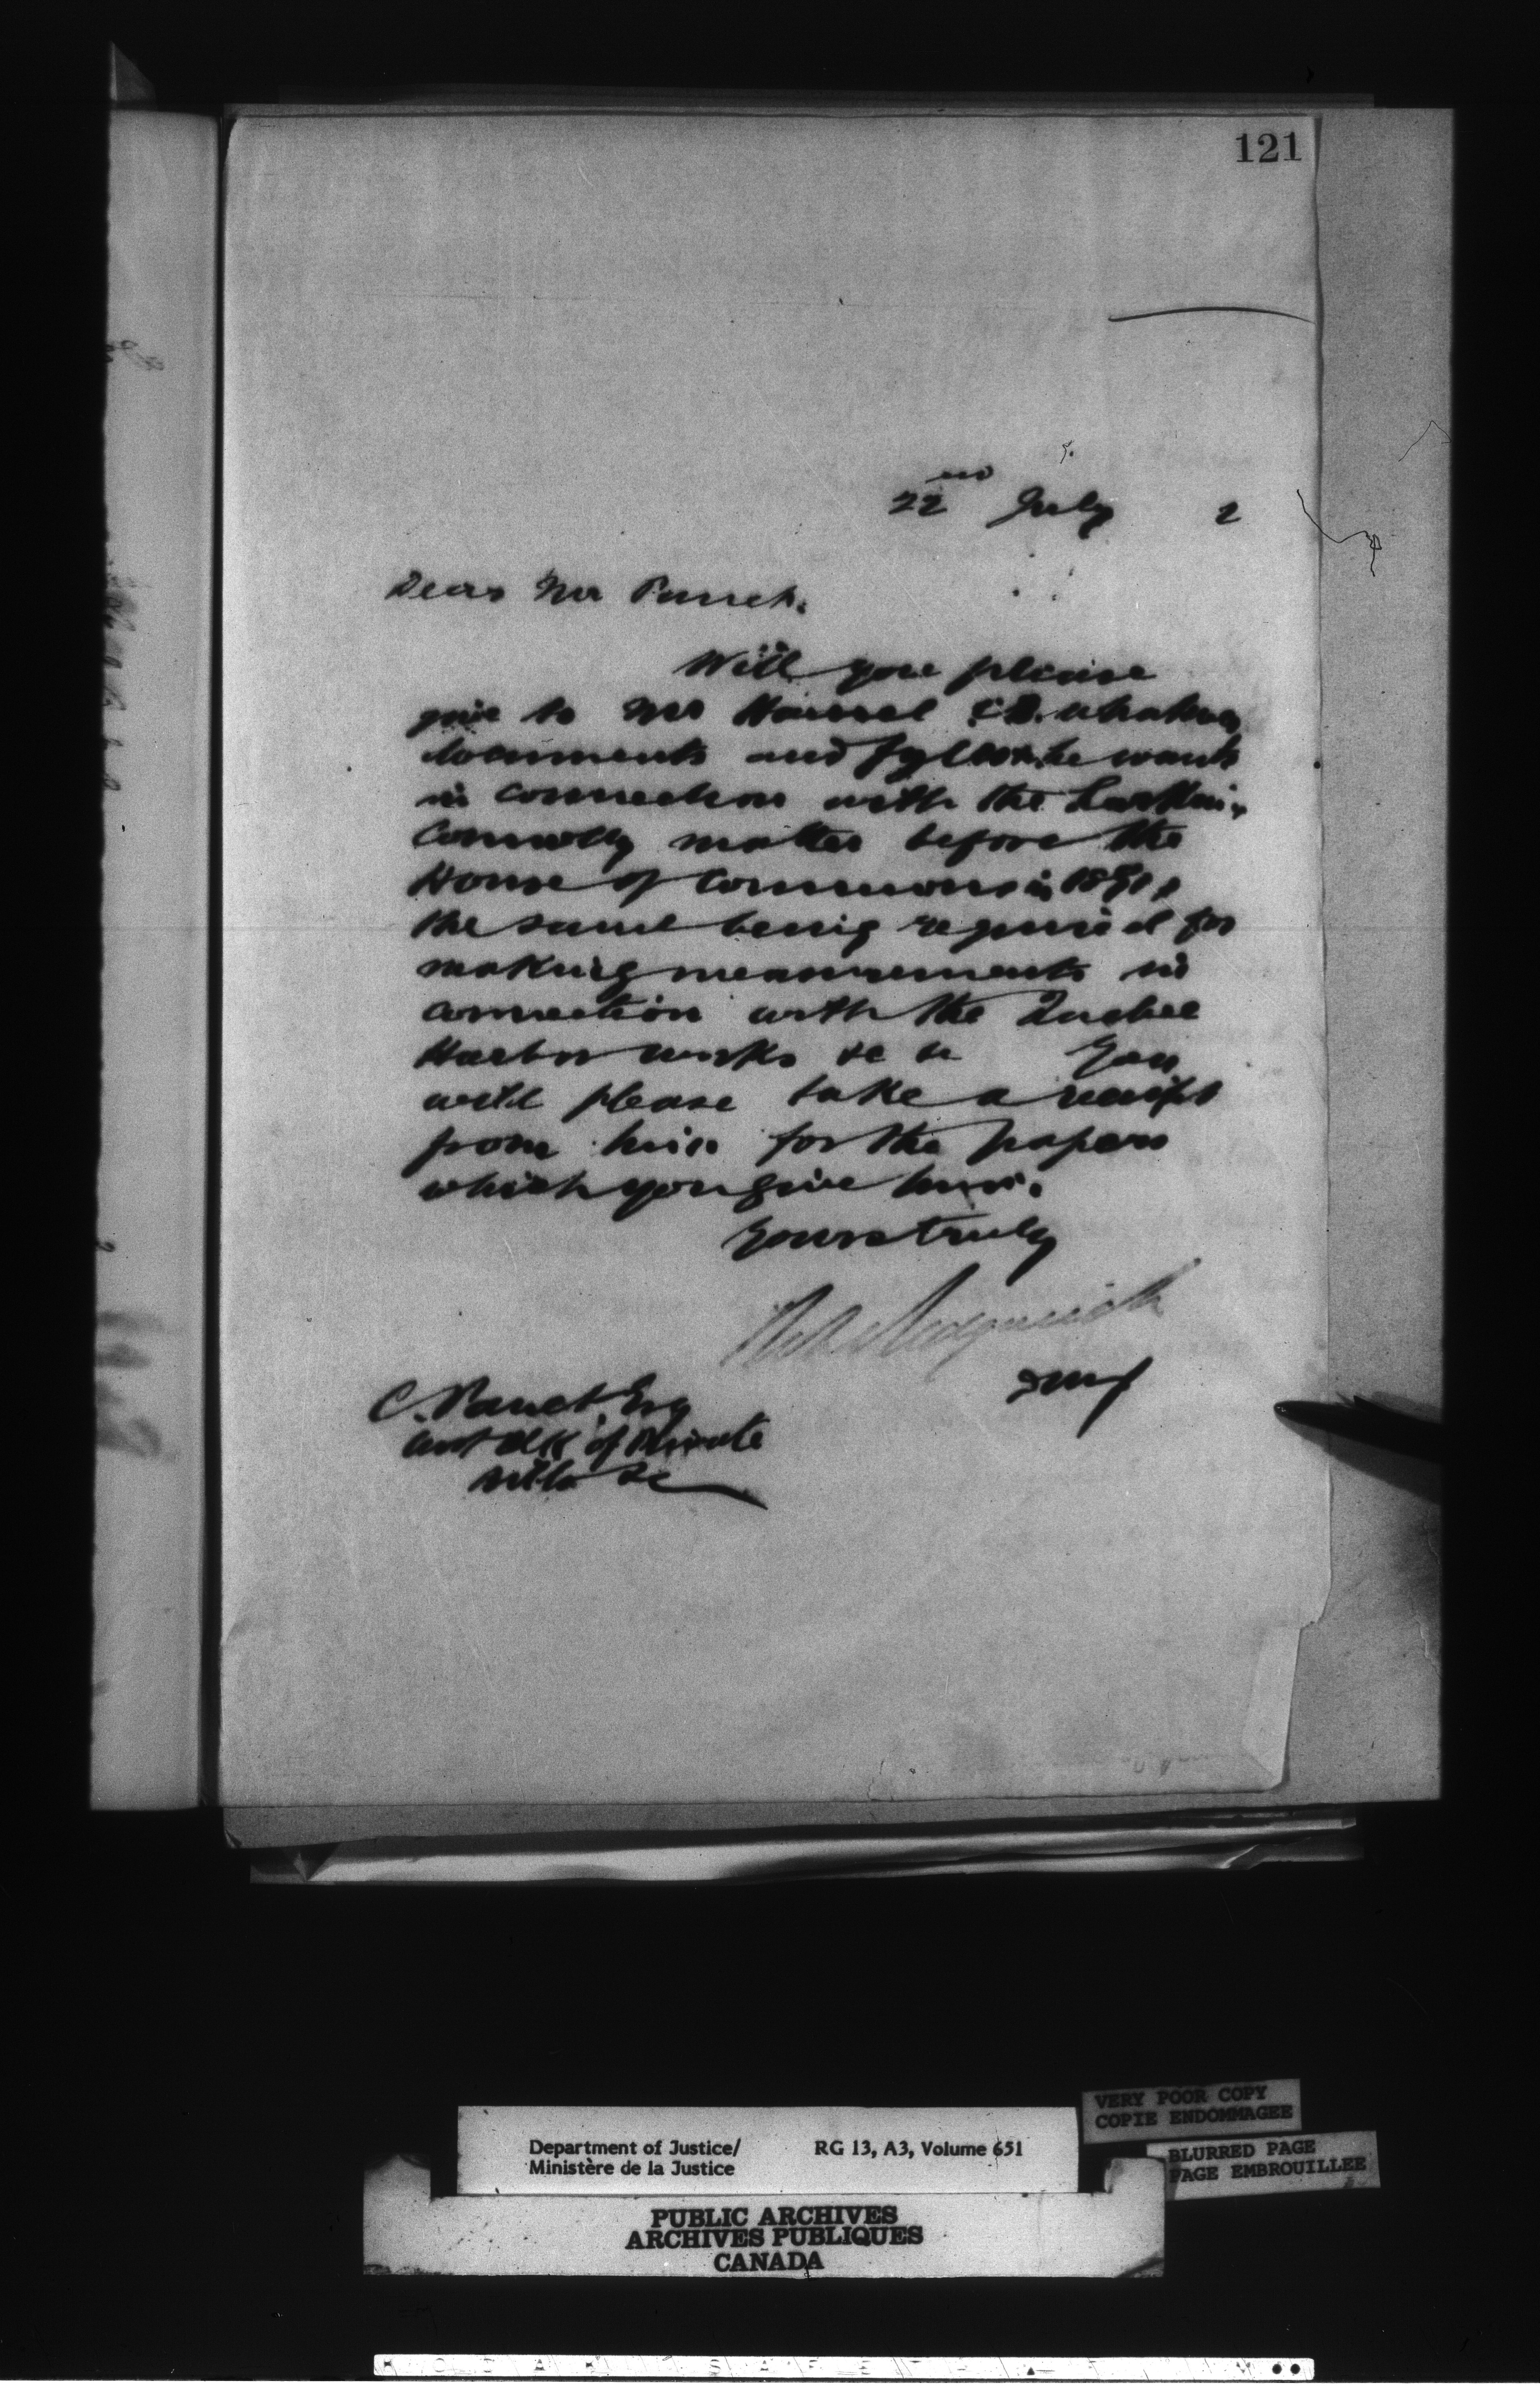 121
22nd July 2
Dear Mr Panet.
Will you please
give to Mr whatever
documents and he wants
in connection with the Larkin,
Connolly matter before the
House of Commons in 1891,
the same being required for
making measurements in
connection with the Quebec
Harbor works &c &c You
will please take a receipt
from him for the papers
which you give him.
Yours truly
Robt Sedgewick
DMJ
C. Panet Esq
Asst Clk of Private
Bills &c
VERY POOR COPY
COPIE ENDOMMAGEE
BLURRED PAGE
PAGE EMBROUILLEE
Department of Justice/ RG 13, A3, Volume 651
Ministère de la Justice
PUBLIC ARCHIVES
ARCHIVES PUBLIQUES
CANADA